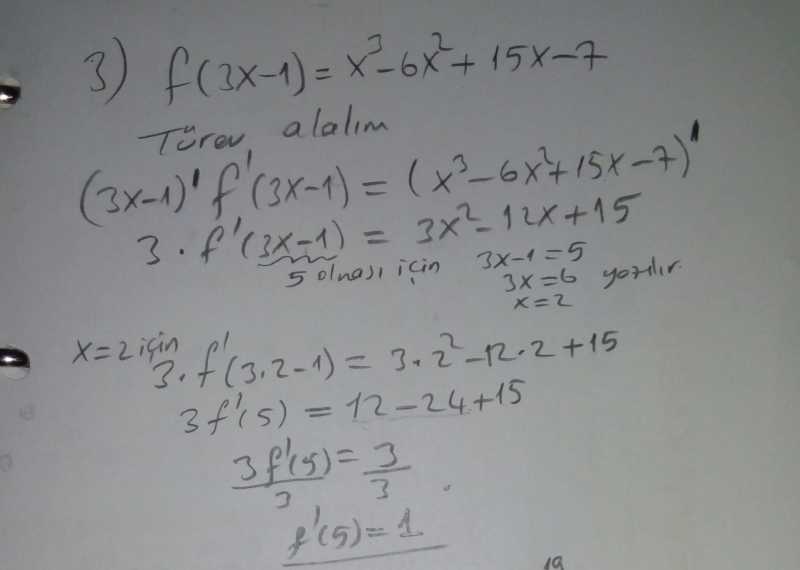 3) f(3x-1) = x³-6x²+15x-7
Türev alalım
(3x-1)' f'(3x-1) = (x³-6x²+15x-7)'
3 · f'(3x-1) = 3x²-12x+15
5 olması için 3x-1=5
3x=6 yazılır.
x=2
x=2 için
3·f'(3·2-1) = 3·2²-12·2+15
3f'(5) = 12-24+15
3f'(5)/3 = 3/3
f'(5)=1
19